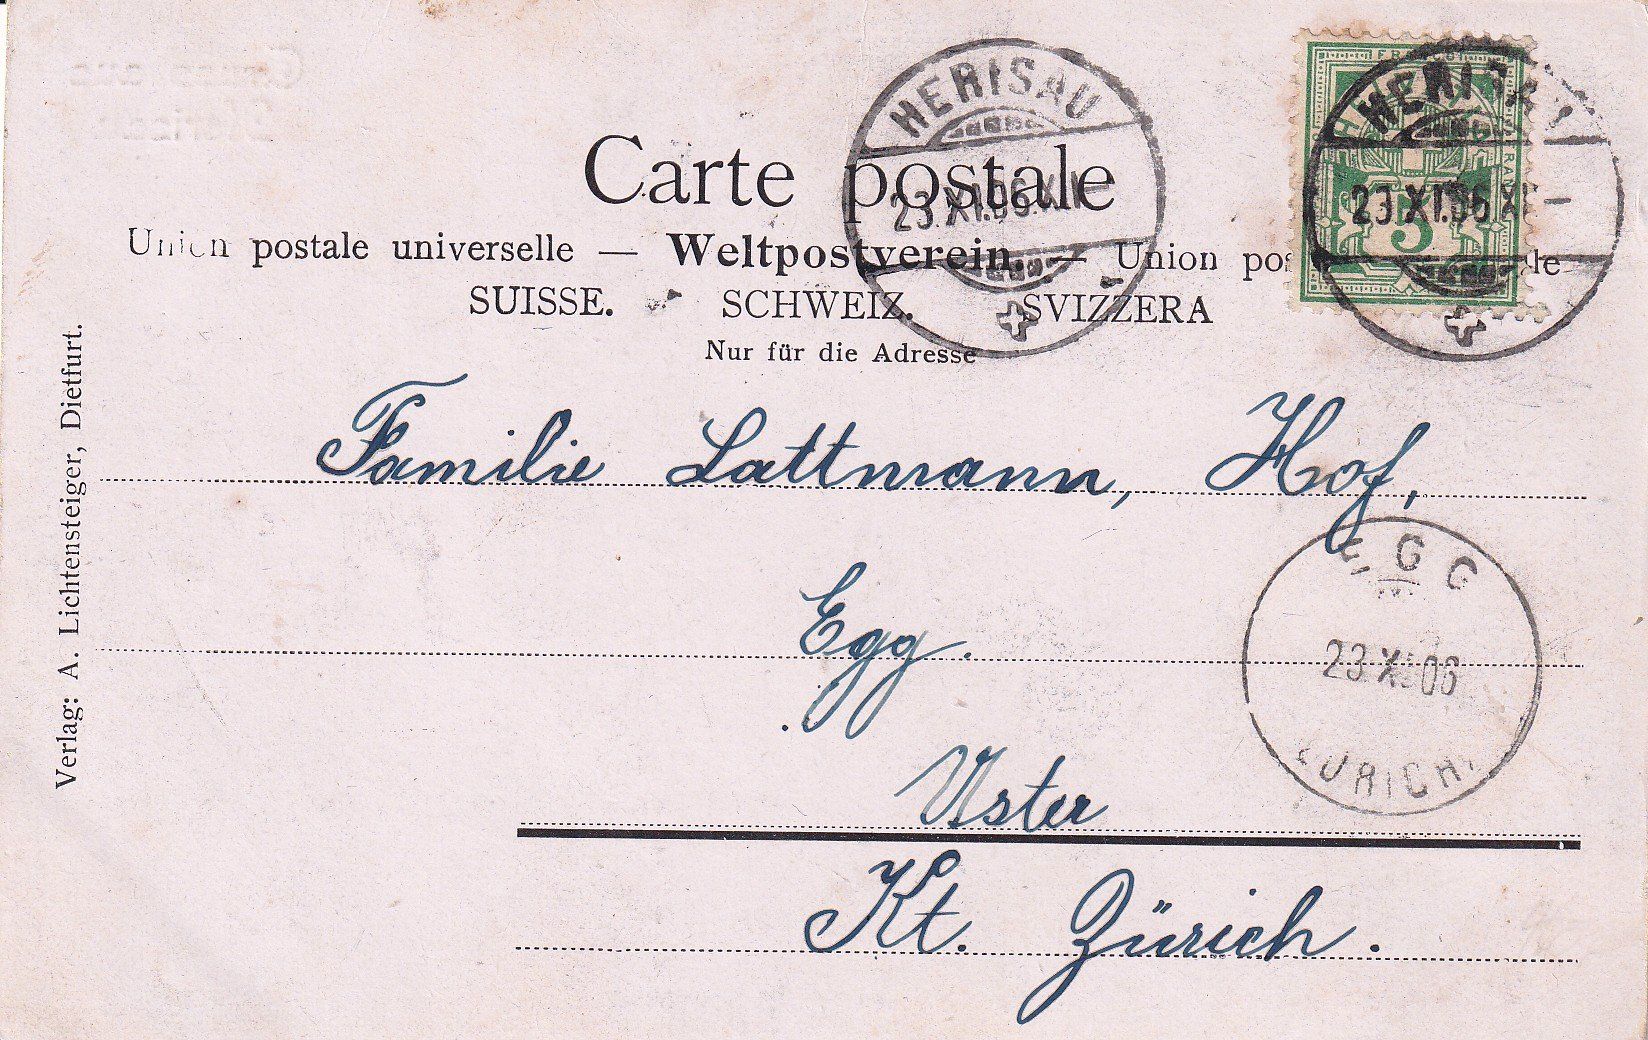 HERISAU
23.XI.06.XII-
HERISAU
23.XI.06.XII-
5
Carte postale
Union postale universelle — Weltpostverein — Union postale
SUISSE. SCHWEIZ. SVIZZERA
Nur für die Adresse
Verlag: A. Lichtensteiger, Dietfurt.
Familie Lattmann, Hof,
EGG
23.XI.06
(ZÜRICH)
Egg.
Uster
Kt. Zürich.